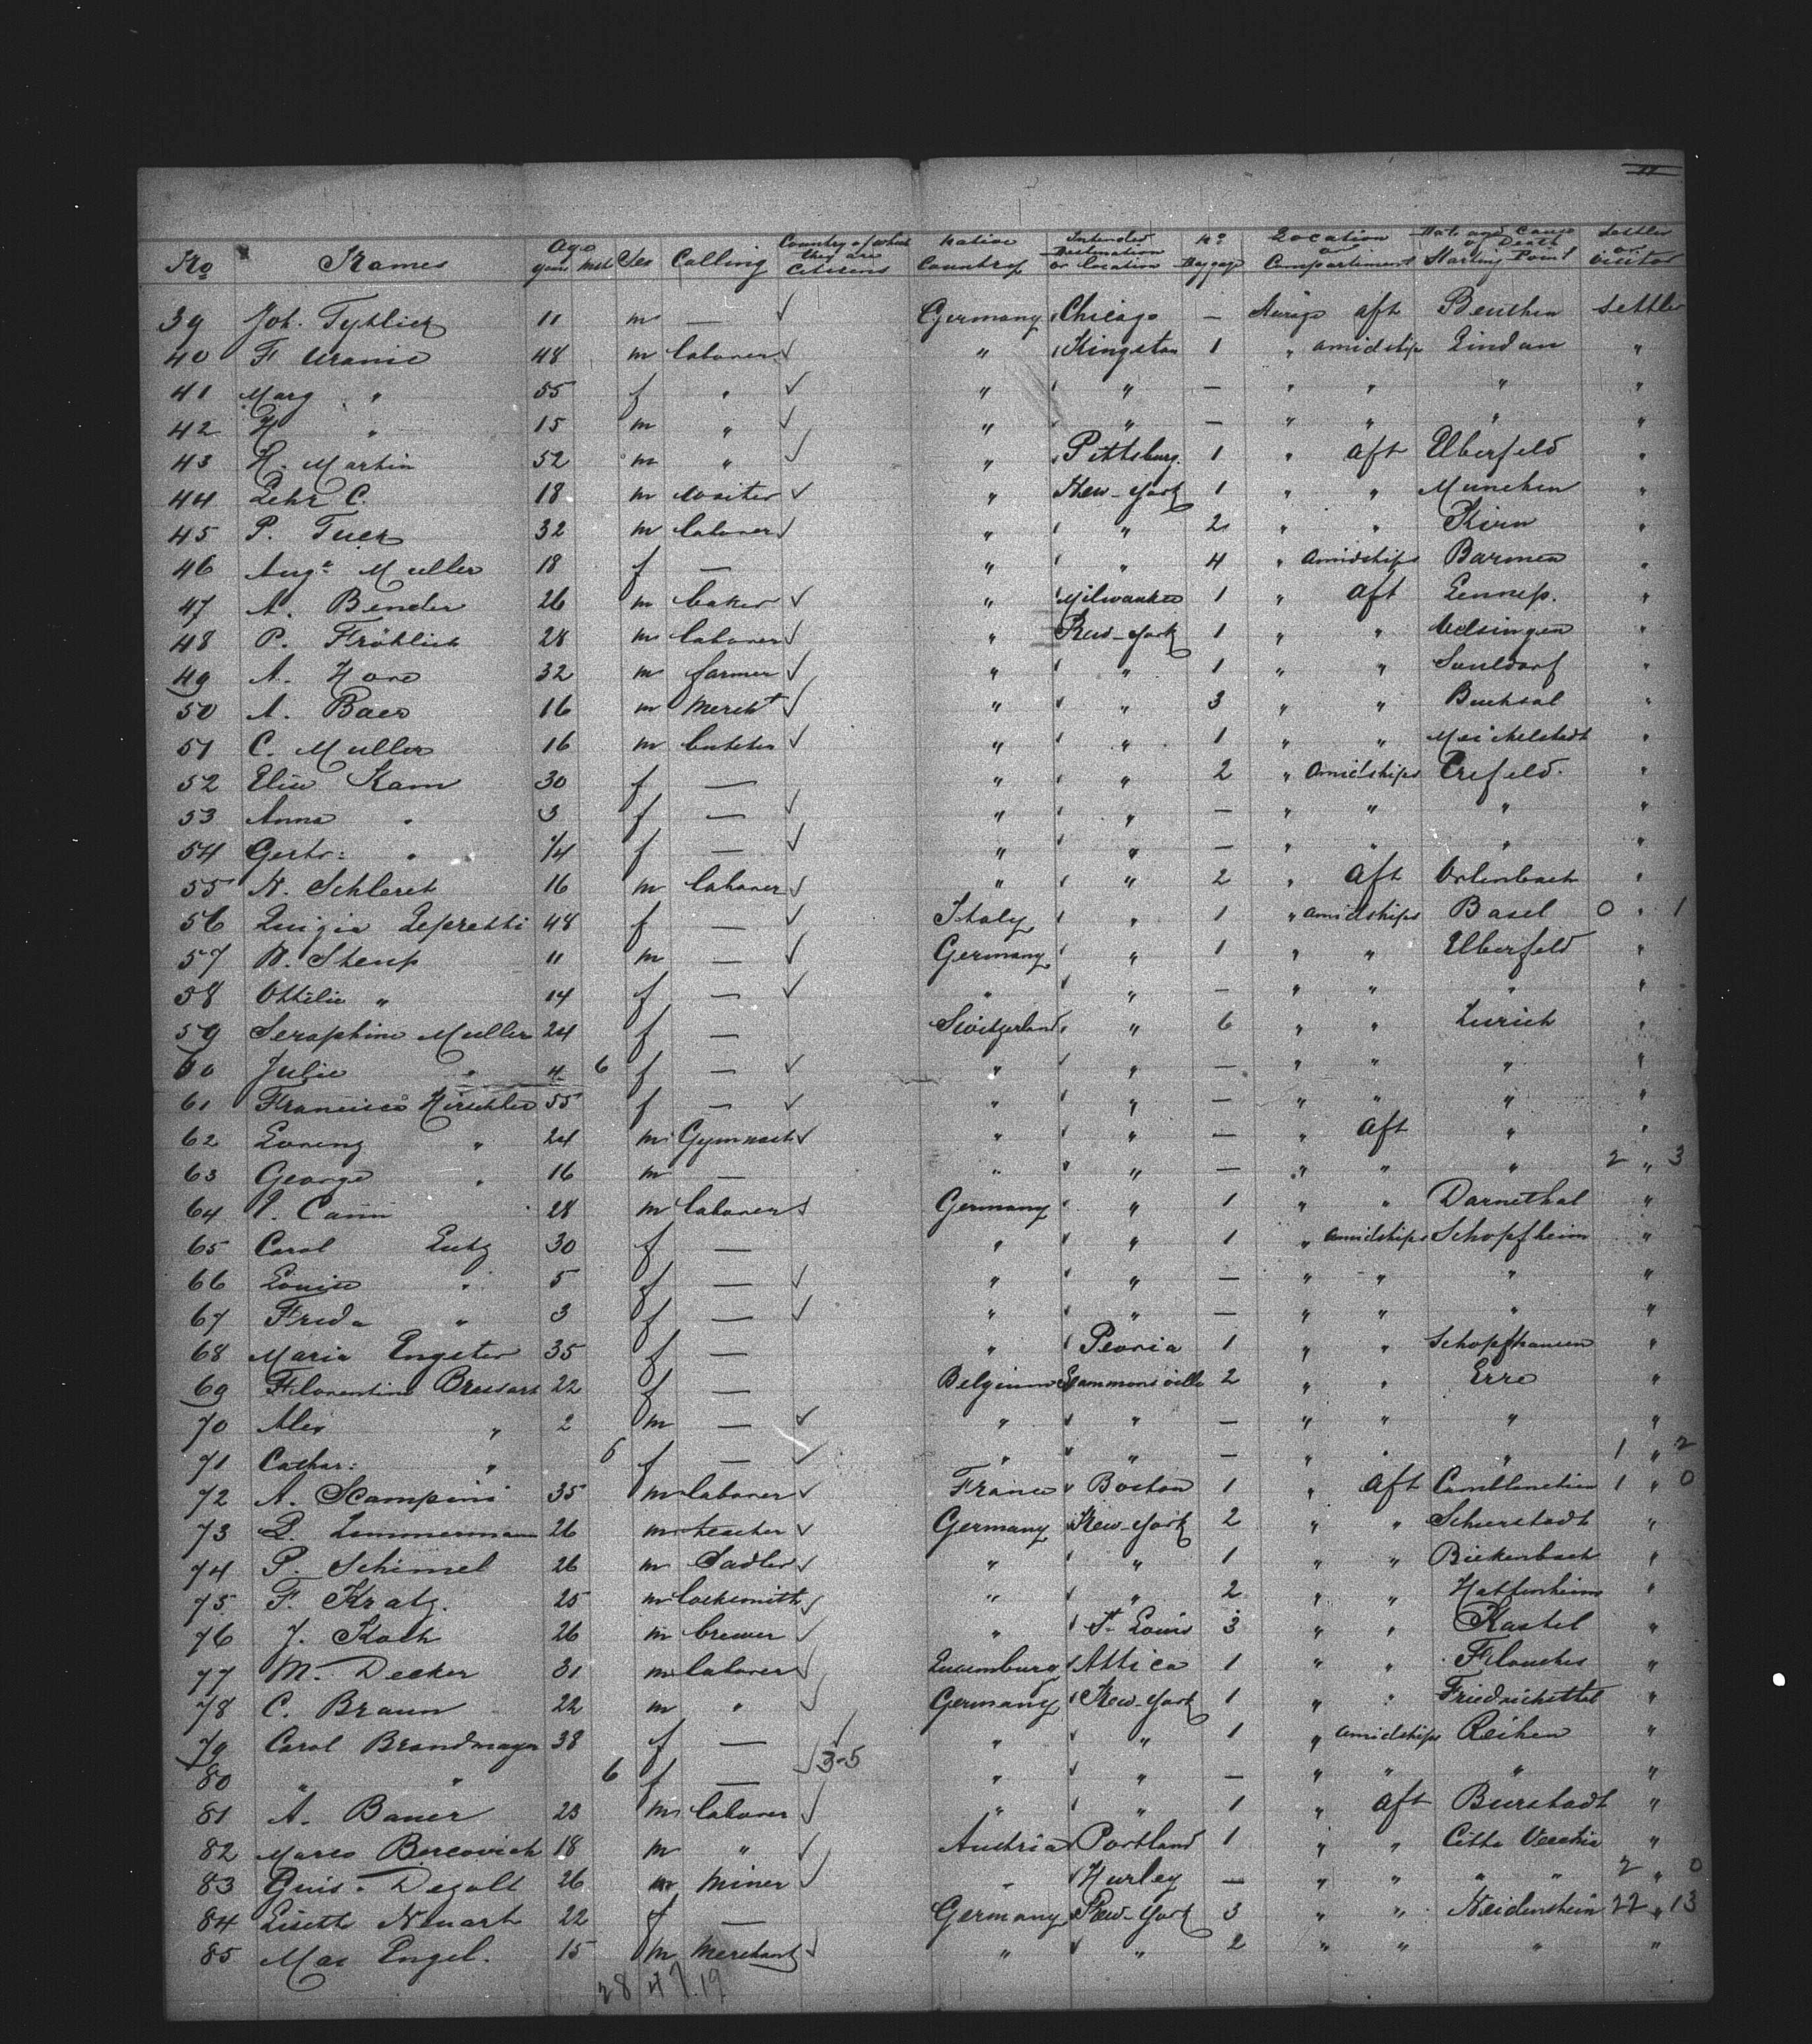 No Names Age years mth Sex Calling Country of what they are Citizens Native Country Intended Destination or location No Baggage Location or Compartement Date and Cause of Death Starting Point Settler or visitor
39 Joh. 11 m — ✓ Germany Chicago — Steerage aft Beuthen Settler
40 F. Uranie 48 m laborer ✓ " Kingston 1 " amidship Lindau "
41 Marg " 55 f " ✓ " " — " " " "
42 H " 15 m " ✓ " " — " " " "
43 H. Martin 52 m " ✓ " Pittsburg. 1 " aft Elberfeld "
44 Lehr C. 18 m waiter ✓ " New-York 1 " " Munchen "
45 P. Tuer 32 m laborer ✓ " " 2 " " Kirn "
46 Aug. Muller 18 f — " " 4 " amidships Barmen "
47 A. Bender 26 m baker ✓ " Milwaukee 1 " aft Lennep. "
48 P. Fröhlich 28 m laborer ✓ " New-York 1 " " "
49 A. Horn 32 m farmer ✓ " " 1 " " "
50 A. Baer 16 m Mercht ✓ " " 3 " " Buchsal "
51 C. Muller 16 m butcher ✓ " " 1 " " Meichelstadt "
52 Elise Kam 30 f — " " 2 " amidships Crefeld. "
53 Anna " 3 f — ✓ " " — " " " "
54 Gertr: " 1/4 f — ✓ " " — " " " "
55 N. Schleret 16 m laborer ✓ " " 2 " aft Ortenbach "
56 Luigia Lepretti 48 f — ✓ Italy " 1 " amidships Basel 0 " 1
57 W. Steup 11 m — ✓ Germany " 1 " " Elberfeld "
58 Ottilie " 14 f — ✓ " " — " " " "
59 Seraphine Muller 24 f — Switzerland " 6 " " Zurich "
60 Julie " 4 6 f — ✓ " " — " " " "
61 Francisca Hirschler 55 f — ✓ " " — " " " "
62 Lorenz " 24 m Gymnast ✓ " " — " aft " "
63 George " 16 m — " " — " " " 2 " 3
64 28 m laborer ✓ Germany " 1 " " Darnethal "
65 Carol Lutz 30 f — " " 1 " amidships Schopfheim "
66 Louise " 5 f — ✓ " " — " " " "
67 Freda " 3 f — ✓ " " — " " " "
68 Maria Engster 35 f — " Peoria 1 " " Schopfhausen "
69 Florentine Bressart 22 f — Belgium Gammonsville 2 " " Erre "
70 Alex " 2 m — ✓ " " — " " " "
71 Cathar: " 6 f — ✓ " " — " " " 1 " 2
72 A. Scampini 35 m laborer ✓ France Boston 1 " aft 1 " 0
73 L. Zimmermann 26 m teacher ✓ Germany New-York 2 " " "
74 P. Schimel 26 m Sadler ✓ " " 1 " " Bickenbach "
75 F. Kratz. 25 m locksmith ✓ " " 2 " " Hattenheim "
76 J. Koch 26 m brewer ✓ " St. Louis 3 " " Kastel "
77 M. Decker 31 m laborer ✓ Luxemburg Attica 1 " " "
78 C. Braun 22 m " ✓ Germany New-York 1 " " "
79 Carol Brandmayer 38 f — ✓ " " 1 " amidships Reihen "
80 " " 6 f — ✓ 3-5 " " — " " " "
81 A. Bauer 23 m laborer ✓ " " 1 " aft Burstadt "
82 Marco Bercovich 18 m " ✓ Austria Portland 1 " " Citta Vecchia "
83 Guis. Dezolt 26 m Miner ✓ " Hurley — " " " " 2 " 0
84 Liseth Neuart 22 f — Germany New-York 3 " " Neidenstein 22 " 13
85 Max Engel. 15 m Merchant ✓ " " 2 " " " "
28 47.19